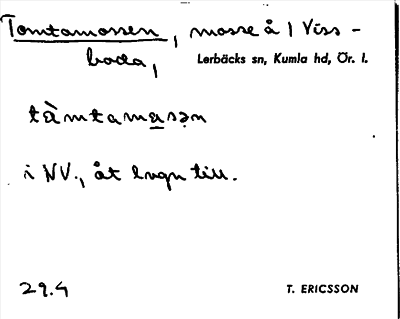 Tomtamossen, mosse å 1 Viss-
boda,
Lerbäcks sn, Kumla hd, Ör. l.
tὰmtamɐsən
i NV., åt lugn till.
29.4
T. ERICSSON